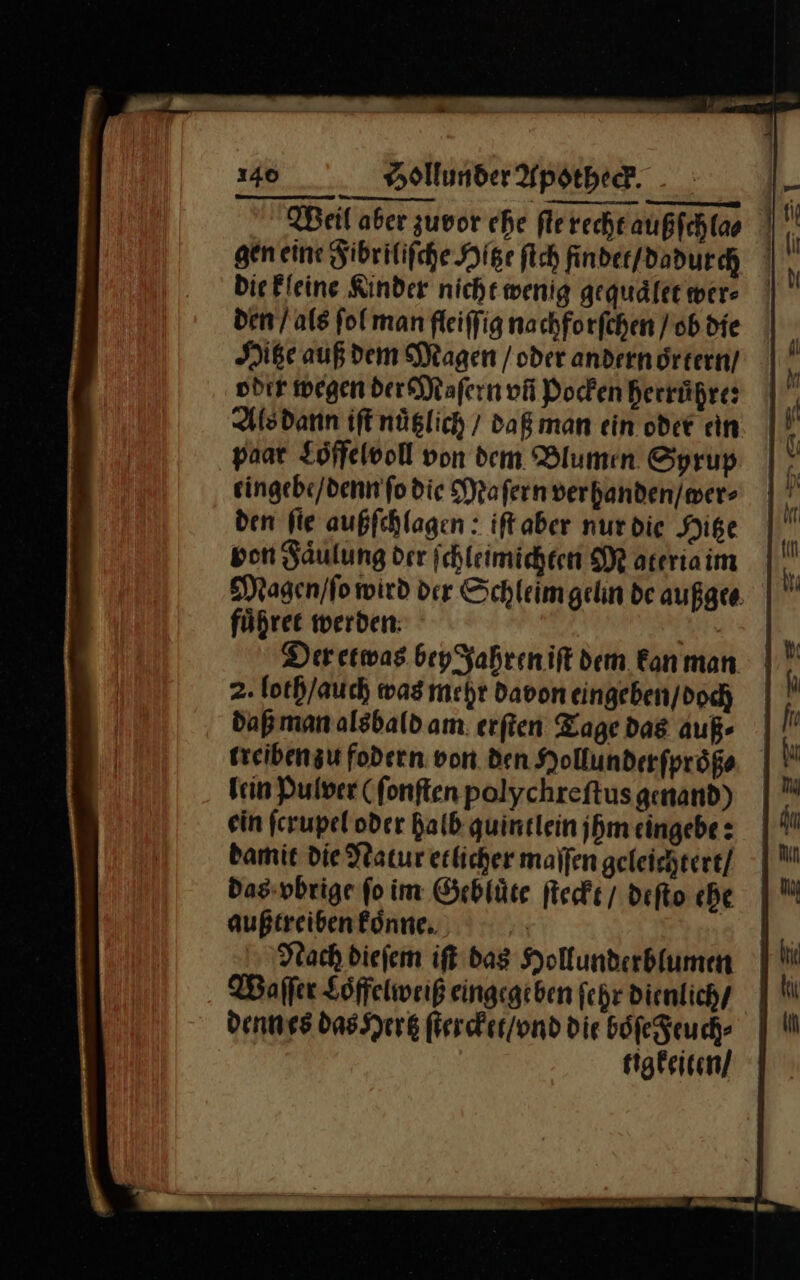 140 Hollunder Apotheck.
Weil aber zuvor ehe ſie recht außſchla⸗
gen eine Fibriliſche Hitze ſich findet/dadurch
die kleine Kinder nicht wenig gequaͤlet wer⸗
den / als ſol man fleiſſig nachforſchen / ob die
Hitze auß dem Magen / oder andern oͤrtern/
oder wegen der Maſern vñ Pocken herruͤhre:
Als dann iſt nuͤtzlich / daß man ein oder ein
paar Loͤffelvoll von dem Blumen Syrup
eingebe/denn ſo die Maſern verhanden/wer⸗
den ſie außſchlagen: iſt aber nur die Hitze
von Faͤulung der ſchleimichten Materia im
Magen/ſo wird der Schleim gelinde außge⸗
fuͤhret werden.
Der etwas bey Jahren iſt dem kan man
2. loth/auch was mehr davon eingeben/doch
daß man alsbald am erſten Tage das auß⸗
treiben zu fodern von den Hollunderſproͤß⸗
lein Pulver (ſonſten polychreſtus genand)
ein ſcrupel oder halb quintlein jhm eingebe:
damit die Natur etlicher maſſen geleichtert/
das vbrige ſo im Gebluͤte ſteckt / deſto ehe
außtreiben koͤnne.
Nach dieſem iſt das Hollunderblumen
Waſſer Loͤffelweiß eingegeben ſehr dienlich/
denn es das Hertz ſtercket/vnd die boͤſe Feuch⸗
tigkeiten/